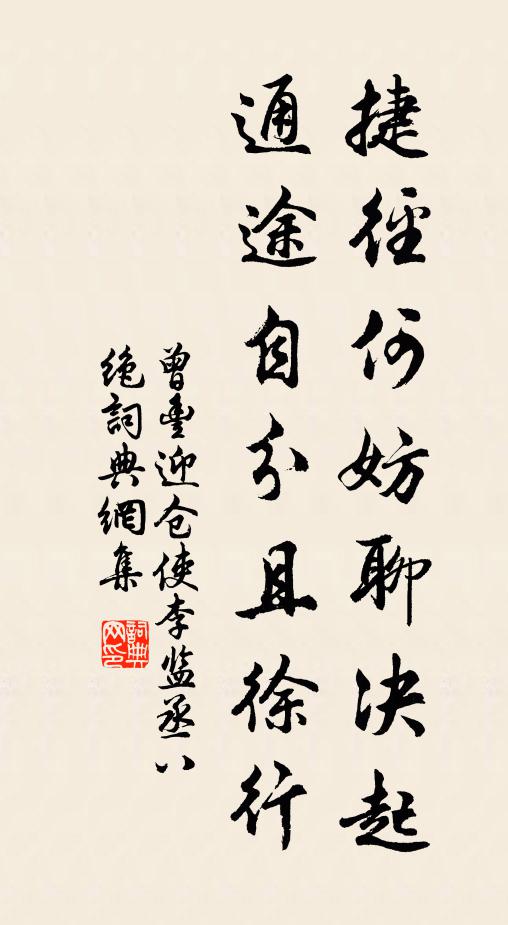 捷徑何妨聊決起
通途自分且徐行
曾豊迎仓使李监丞八
絶詞典網集
詞典
网印